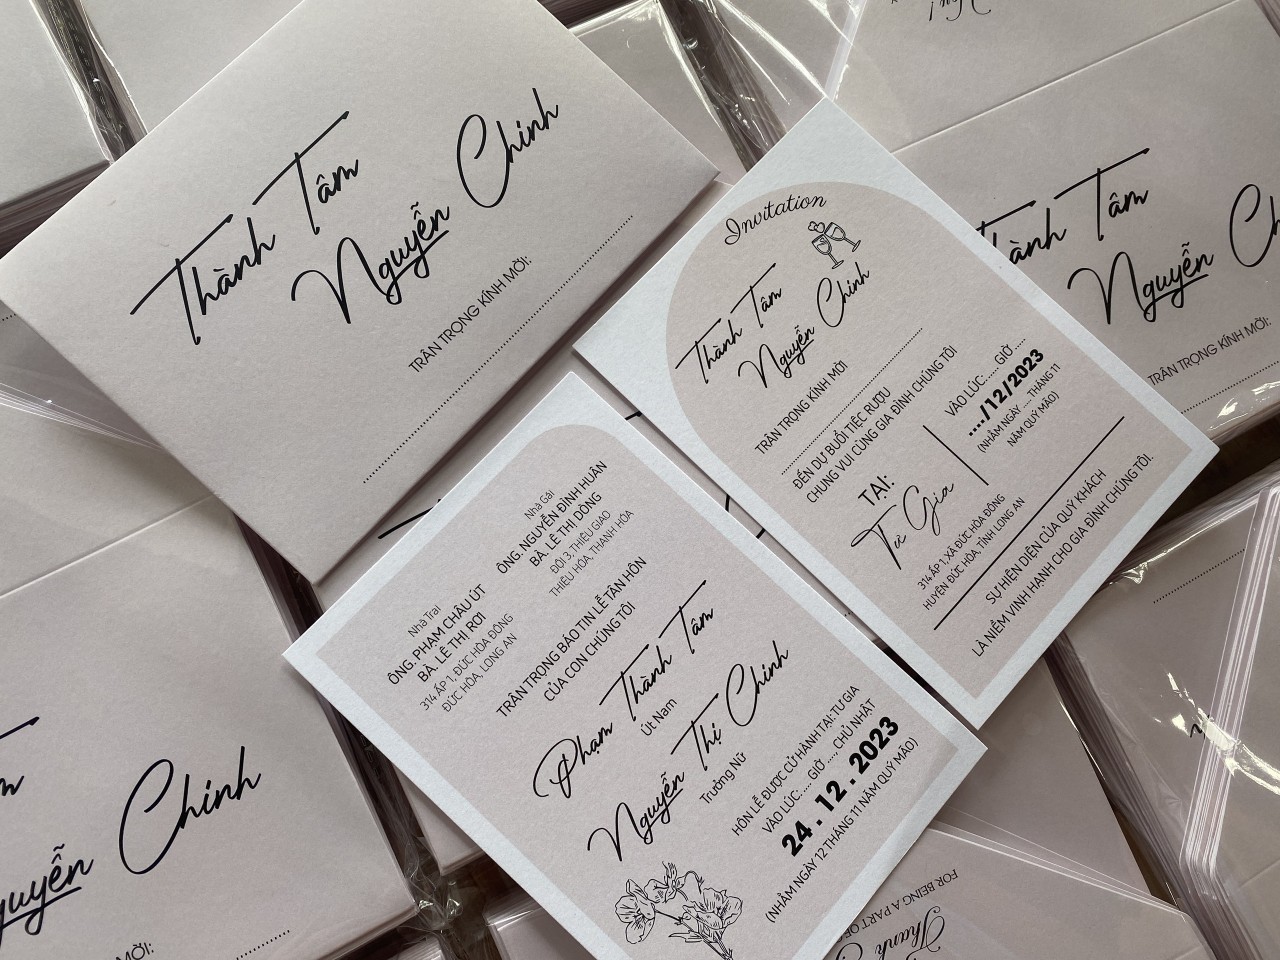 Thành Tâm
Nguyễn Chinh
TRÂN TRỌNG KÍNH MỜI:
Invitation
Thành Tâm
Nguyễn Chinh
TRÂN TRỌNG KÍNH MỜI
ĐẾN DỰ BUỔI TIỆC RƯỢU
CHUNG VUI CÙNG GIA ĐÌNH CHÚNG TÔI
TẠI:
Tư Gia
VÀO LÚC: ..... GIỜ .....
..../12/2023
(NHẰM NGÀY .... THÁNG 11
NĂM QUÝ MÃO)
314 ẤP 1, XÃ ĐỨC HÒA ĐÔNG
HUYỆN ĐỨC HÒA, TỈNH LONG AN
SỰ HIỆN DIỆN CỦA QUÝ KHÁCH
LÀ NIỀM VINH HẠNH CHO GIA ĐÌNH CHÚNG TÔI.
Nhà Trai
ÔNG. PHẠM CHÂU ÚT
BÀ. LÊ THỊ RƠI
314 ẤP 1, ĐỨC HÒA ĐÔNG
ĐỨC HÒA, LONG AN
Nhà Gái
ÔNG. NGUYỄN ĐÌNH HUÂN
BÀ. LÊ THỊ DÔNG
ĐỘI 3, THIỆU GIAO
THIỆU HÓA, THANH HÓA
TRÂN TRỌNG BÁO TIN LỄ TÂN HÔN
CỦA CON CHÚNG TÔI
Phạm Thành Tâm
Út Nam
Nguyễn Thị Chinh
Trưởng Nữ
HÔN LỄ ĐƯỢC CỬ HÀNH TẠI: TƯ GIA
VÀO LÚC: .... GIỜ ...., CHỦ NHẬT
24 . 12 . 2023
(NHẰM NGÀY 12 THÁNG 11 NĂM QUÝ MÃO)
Thành Tâm
Nguyễn Ch
TRÂN TRỌNG KÍNH MỜI:
Chinh
guyễn
MỜI:
FOR BEING A PART OF
Thank